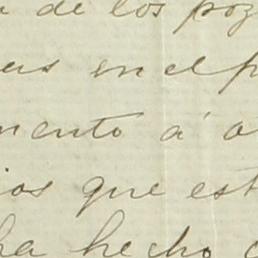 a de los poz
en el p
mento á o
ios que est
ha hecho